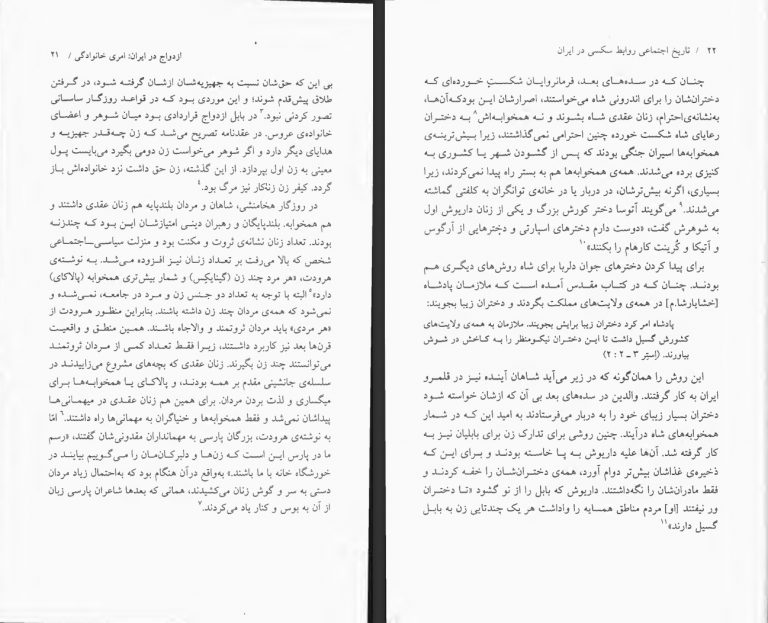 ازدواج در ایران: امری خانوادگی / ۲۱
بی این که حق‌شان نسبت به جهیزیه‌شان ازشان گرفته شود، در گرفتن
طلاق پیش‌قدم شوند؛ و این موردی بود که در قواعد روزگار ساسانی
تصور کردنی نبود.۳ در بابل ازدواج قراردادی بود میان شوهر و اعضای
خانواده‌ی عروس. در عقدنامه تصریح می‌شد که زن چه‌قدر جهیزیه و
هدایای دیگر دارد و اگر شوهر می‌خواست زن دومی بگیرد می‌بایست پول
معینی به زن اول بپردازد. از این گذشته، زن حق داشت نزد خانواده‌اش باز
گردد. کیفر زن زناکار نیز مرگ بود.۴
در روزگار هخامنشی، شاهان و مردان بلندپایه هم زنان عقدی داشتند و
هم همخوابه. بلندپایگان و رهبران دینی امتیازشان این بود که چندزنه
بودند. تعداد زنان نشانه‌ی ثروت و مکنت بود و منزلت سیاسی–اجتماعی
شخص که بالا می‌رفت بر تعداد زنان نیز افزوده می‌شد. به نوشته‌ی
هرودت، «هر مرد چند زن (گیناپکِس) و شمار بیش‌تری همخوابه (پالاکای)
دارد»۵ البته با توجه به تعداد دو جنس زن و مرد در جامعه، نمی‌شده و
نمی‌شود که همه‌ی مردان چند زن داشته باشند. بنابراین منظور هرودت از
«هر مردی» باید مردان ثروتمند و والاجاه باشند. همین منطق و واقعیت
قرن‌ها بعد نیز کاربرد داشتند، زیرا فقط تعداد کمی از مردان ثروتمند
می‌توانستند چند زن بگیرند. زنان عقدی که بچه‌های مشروع می‌زاییدند در
سلسله‌ی جانشینی مقدم بر همه بودند، و پالاکای یا همخوابه‌ها برای
میگساری و لذت بردن مردان. برای همین هم زنان عقدی در میهمانی‌ها
پیداشان نمی‌شد و فقط همخوابه‌ها و خنیاگران به مهمانی‌ها راه داشتند.۶ امّا
به نوشته‌ی هرودت، بزرگان پارسی به مهمانداران مقدونی‌شان گفتند، «رسم
ما در پارس این است که زن‌ها و دلبرکان‌مان را می‌گوییم بیایند در
خورشگاه خانه با ما باشند.» به‌واقع درآن هنگام بود که به‌احتمال زیاد مردان
دستی به سر و گوش زنان می‌کشیدند، همانی که بعدها شاعران پارسی زبان
از آن به بوس و کنار یاد می‌کردند.۷
۲۲ / تاریخ اجتماعی روابط سکسی در ایران
چنان که در سده‌های بعد، فرمانروایان شکستِ خورده‌ای که
دختران‌شان را برای اندرونی شاه می‌خواستند، اصرارشان این بودکه‌آن‌ها،
به‌نشانه‌ی‌احترام، زنان عقدی شاه بشوند و نه همخوابه‌اش۸ به دختران
رعایای شاه شکست خورده چنین احترامی نمی‌گذاشتند، زیرا بیش‌ترینه‌ی
همخوابه‌ها اسیران جنگی بودند که پس از گشودن شهر یا کشوری به
کنیزی برده می‌شدند. همه‌ی همخوابه‌ها هم به بستر راه پیدا نمی‌کردند، زیرا
بسیاری، اگرنه بیش‌ترشان، در دربار یا در خانه‌ی توانگران به کلفتی گماشته
می‌شدند.۹ می‌گویند آتوسا دختر کورش بزرگ و یکی از زنان داریوش اول
به شوهرش گفت، «دوست دارم دخترهای اسپارتی و دخترهایی از آرگوس
و آتیکا و کُرینت کارهام را بکنند»۱۰
برای پیدا کردن دخترهای جوان دلربا برای شاه روش‌های دیگری هم
بودند. چنان که در کتاب مقدس آمده است که ملازمان پادشاه
[خشایارشا.م] در همه‌ی ولایت‌های مملکت بگردند و دختران زیبا بجویند:
پادشاه امر کرد دختران زیبا برایش بجویند. ملازمان به همه‌ی ولایت‌های
کشورش گسیل داشت تا این دختران نیکومنظر را به کاخش در شوش
بیاورند. (اِستِر ۳ – ۲ : ۲)
این روش را همان‌گونه که در زیر می‌آید شاهان آینده نیز در قلمرو
ایران به کار گرفتند. والدین در سده‌های بعد بی آن که ازشان خواسته شود
دختران بسیار زیبای خود را به دربار می‌فرستادند به امید این که در شمار
همخوابه‌های شاه درآیند. چنین روشی برای تدارک زن برای بابلیان نیز به
کار گرفته شد. آن‌ها علیه داریوش به پا خاسته بودند و برای این که
ذخیره‌ی غذاشان بیش‌تر دوام آورد، همه‌ی دختران‌شان را خفه کردند و
فقط مادران‌شان را نگه‌داشتند. داریوش که بابل را از نو گشود «تا دختران
ور نیفتند [او] مردم مناطق همسایه را واداشت هر یک چندتایی زن به بابل
گسیل دارند»۱۱